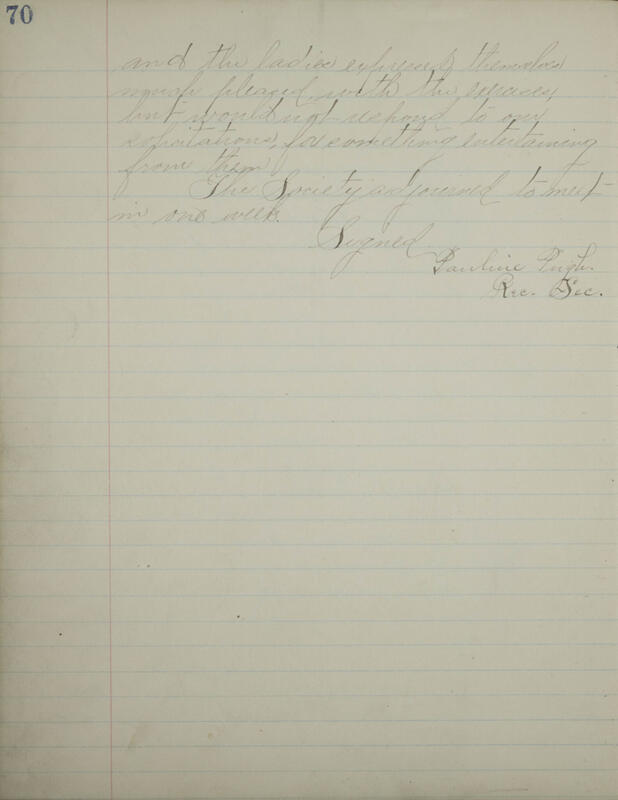 70
and the ladies expressed themselves
much pleased with the exercises,
but would not respond to our
solicitations, for something entertaining
from them.
The Society adjourned to meet
in one week.
Signed
Pauline Pugh.
Rec. Sec.